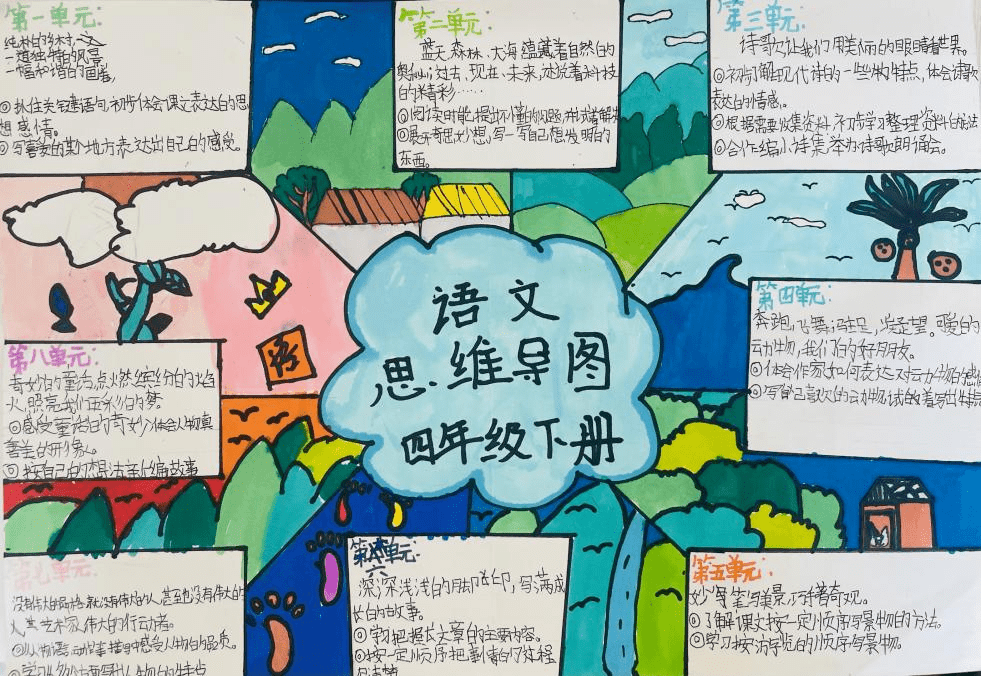 第一单元:
纯朴的乡村,
一道独特的风景
一幅和谐的画卷。
◎抓住关键语句,初步体会课文表达的思
想感情。
◎写喜爱的某个地方,表达出自己的感受。
第二单元
蓝天、森林、大海,蕴藏着自然的
奥秘;过去、现在、未来,述说着科技
的精彩……
◎阅读时能提出不懂的问题,并试着解决
◎展开奇思妙想,写一写自己想发明的
东西。
第三单元:
诗歌,让我们用美丽的眼睛看世界。
◎初步了解现代诗的一些特点,体会诗歌
表达的情感。
◎根据需要收集资料,初步学习整理资料的方法
◎合作编小诗集,举办诗歌朗诵会。
第四单元:
奔跑,飞舞;驻足,凝望。可爱的
动物,我们的好朋友。
◎体会作家如何表达对动物的感情
◎写自己喜欢的动物,试着写出特点
语文
思维导图
四年级下册
第八单元:
奇妙的童话,点燃缤纷的焰
火,照亮我们五彩的梦。
◎感受童话的奇妙,体会人物真
善美的形象。
◎按自己的想法新编故事
第七单元:
没有伟大的品格,就没有伟大的人,甚至也没有伟大的
人,艺术家,伟大的行动者。
◎从人物语言、动作等描写中感受人物的品质。
◎学习从多个方面写出人物的特点
第六单元:
深深浅浅的脚印,写满成
长的故事。
◎学习把握长文章的主要内容。
◎按一定顺序把事情的过程
写清楚
第五单元:
妙笔写美景,巧手著奇观。
◎了解课文按一定顺序写景物的方法。
◎学习按游览的顺序写景物。